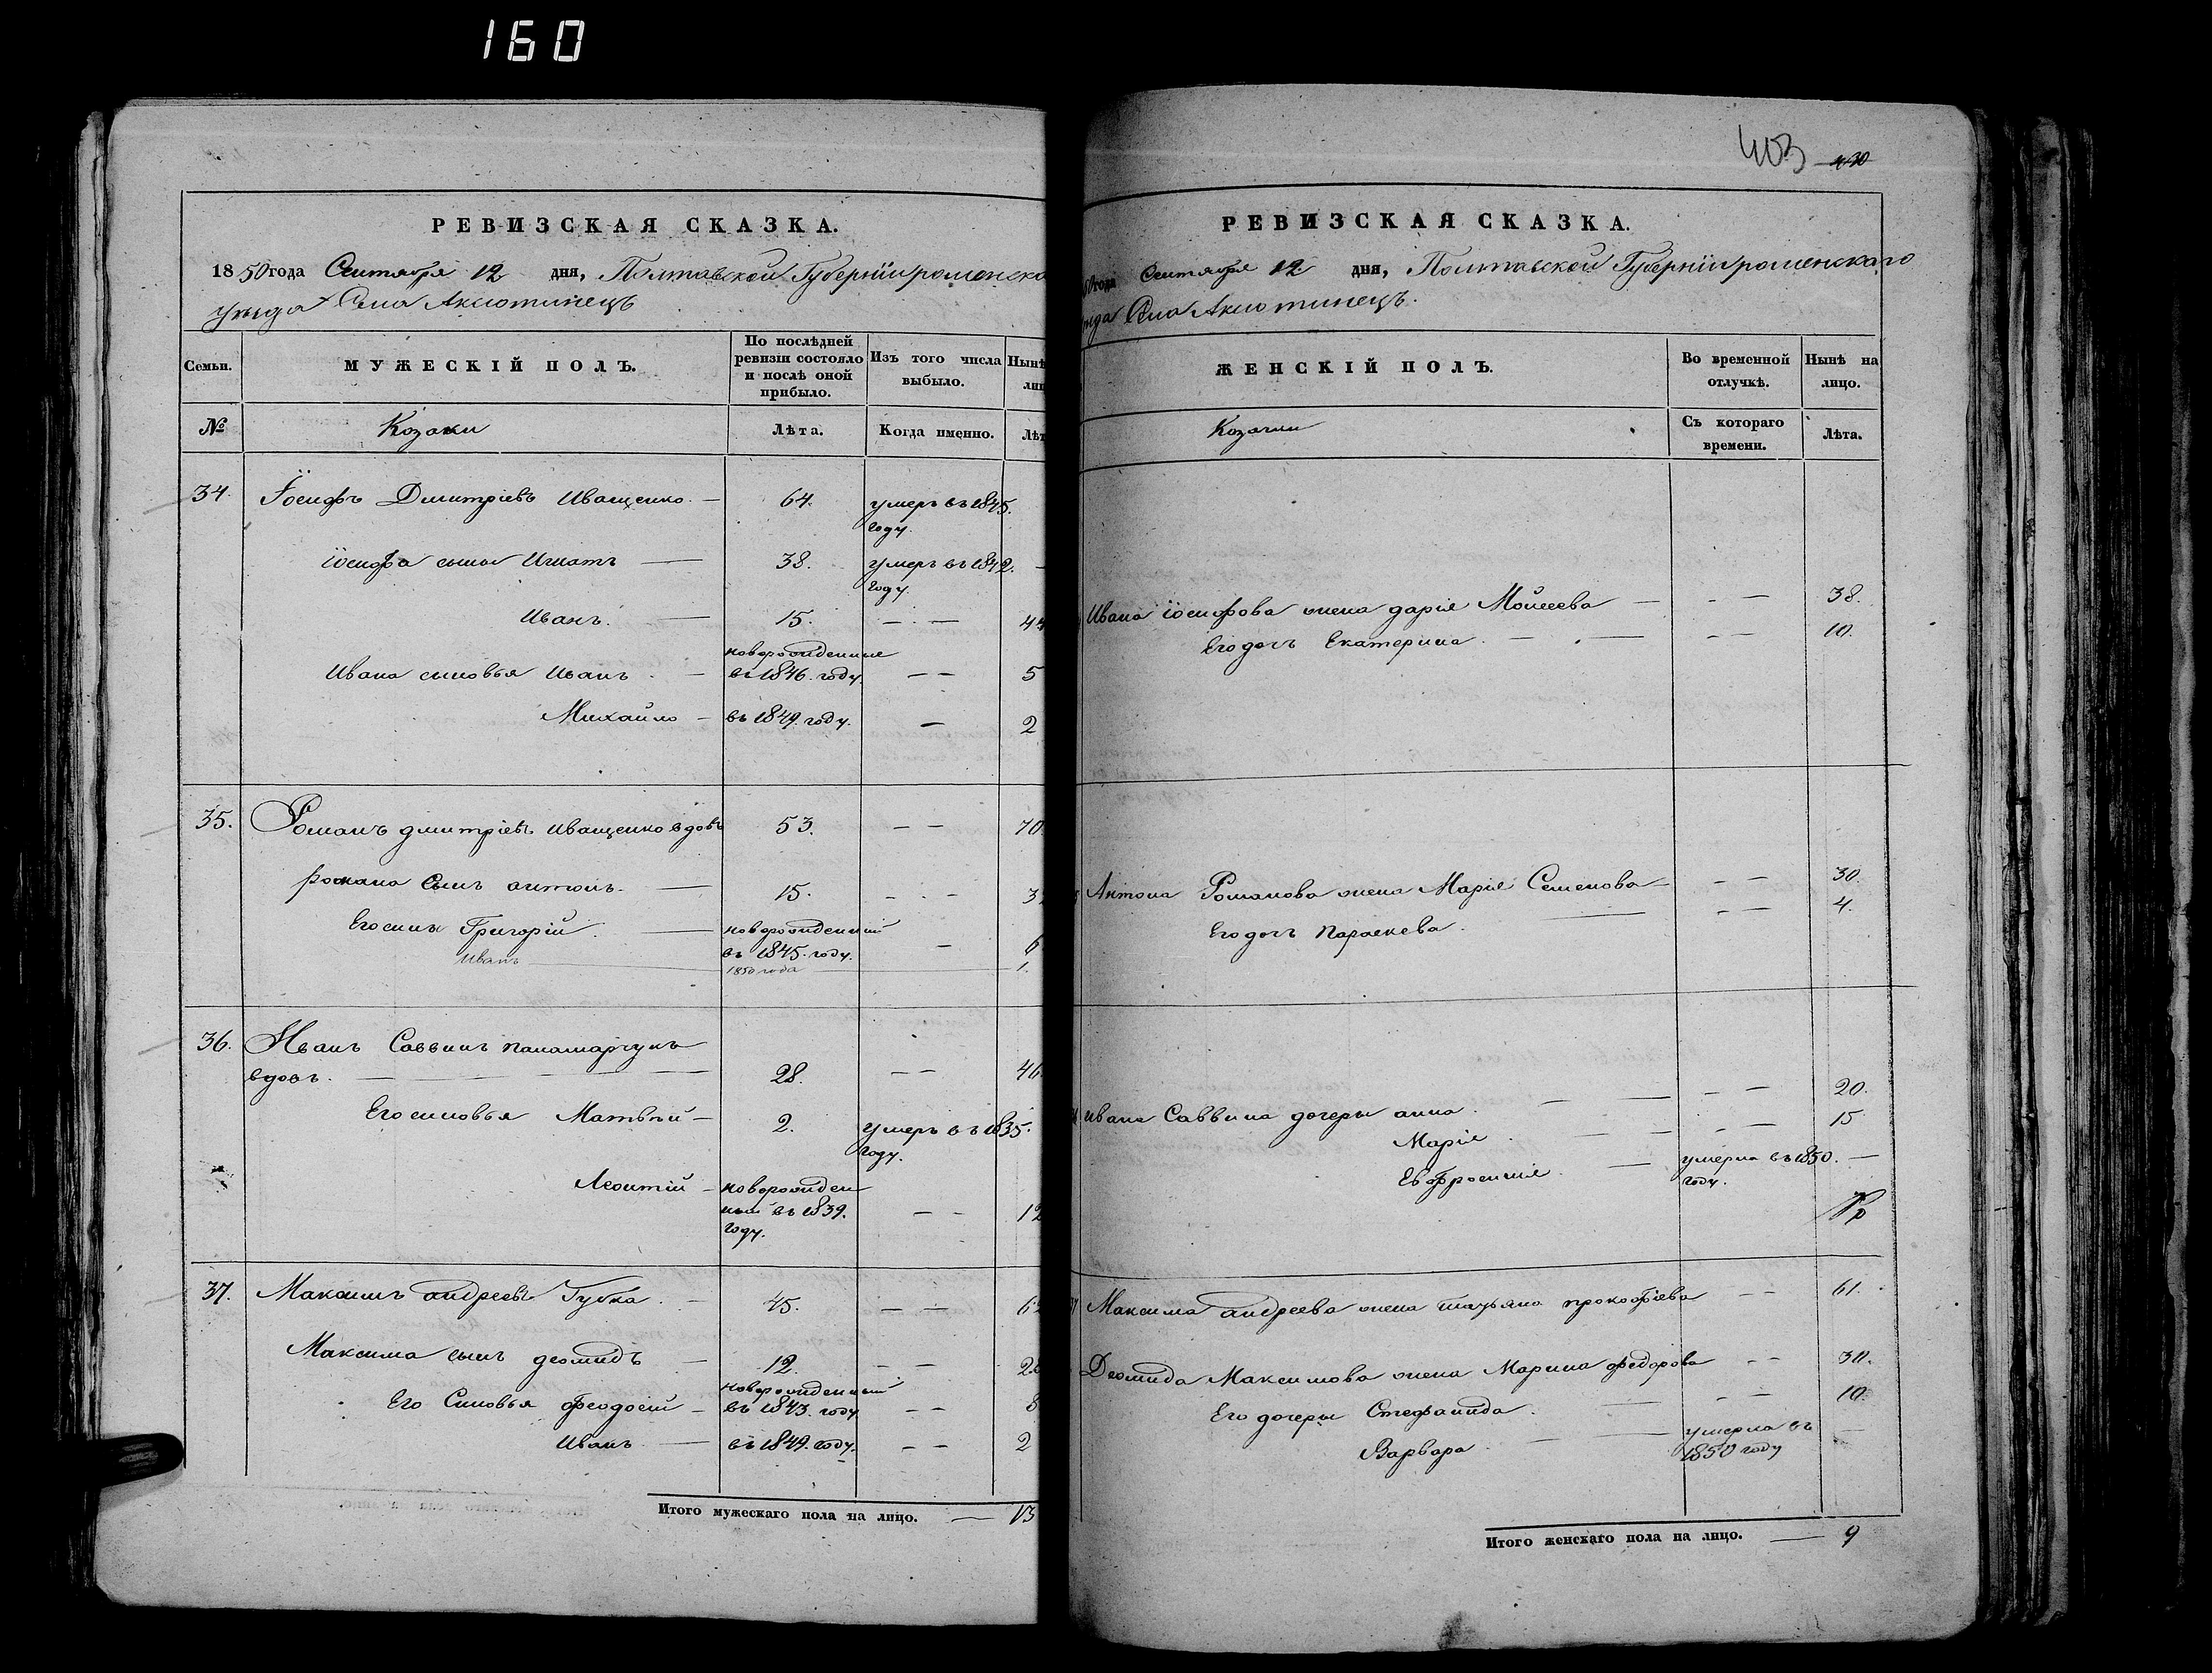 160
РЕВИЗСКАЯ СКАЗКА.
1850 года Сентября 12 дня, Полтавской Губерніи роменска
уезда Села Аксютинецъ
Семьи.
МУЖЕСКІЙ ПОЛЪ.
По послѣдней ревизіи состояло и послѣ оной прибыло.
Изъ того числа выбыло.
Нынѣ
лиц
№
Козаки
Лѣта.
Когда именно.
Лѣт
34. Іосифъ Дмитріевъ Иващенко — 64. умеръ въ 1845.
году.
іосифа сыны Игнатъ — 38. умеръ въ 1842. —
году.
Иванъ. — 15. — — 44
новорожденные
Ивана сыновья Иванъ — въ 1846. году. — — 5
Михайло — въ 1849. году. — 2
35. Романъ дмитріевъ Иващенко вдовъ 53. — — 70.
романа Сынъ антонъ. — 15. — — 3
Его сыны Григорій. — новорожденный
въ 1845. году. — 6
Иванъ 1850 года 1.
36. Иванъ Саввинъ панамарчукъ
вдовъ. — 28. — — 46.
Его сыновья Матвѣй — 2. умеръ въ 1835.
году.
Леонтій — новорожден
ный въ 1839. — — 12
году.
37. Максимъ андреевъ Губка. — 45. — — 62
Максима сынъ деомидъ — 12. — — 2
новорожденный
Его Сыновья феодосій — въ 1843. году — — 8
Иванъ — въ 1849. году. — — 2
Итого мужескаго пола на лицо. — 13
403 430
РЕВИЗСКАЯ СКАЗКА.
50 года Сентября 12. дня, Полтавской Губерніи роменскаго
езда Села Аксютинецъ.
ЖЕНСКІЙ ПОЛЪ.
Во временной отлучкѣ.
Нынѣ на лицо.
Козачки
Съ котораго времени.
Лѣта.
Ивана іосифова жена дарія Мойсеева — — — 38.
Его дочь Екатерина. — — — 10.
Антона Романова жена Марія Семенова — — — 30.
Его дочь параскева. — — — 4.
ивана Саввина дочеры анна. — — — 20.
Марія. — — — 15
Евфросинія. — умерла въ 1850. —
году.
Максима андреева жена татьяна прокофіева — — 61.
Деомида Максимова жена Марина федорова — — 30.
Его дочеры Стефанида. — — — 10.
Варвара. — умерла въ —
1850 году
Итого женскаго пола на лицо. — 9